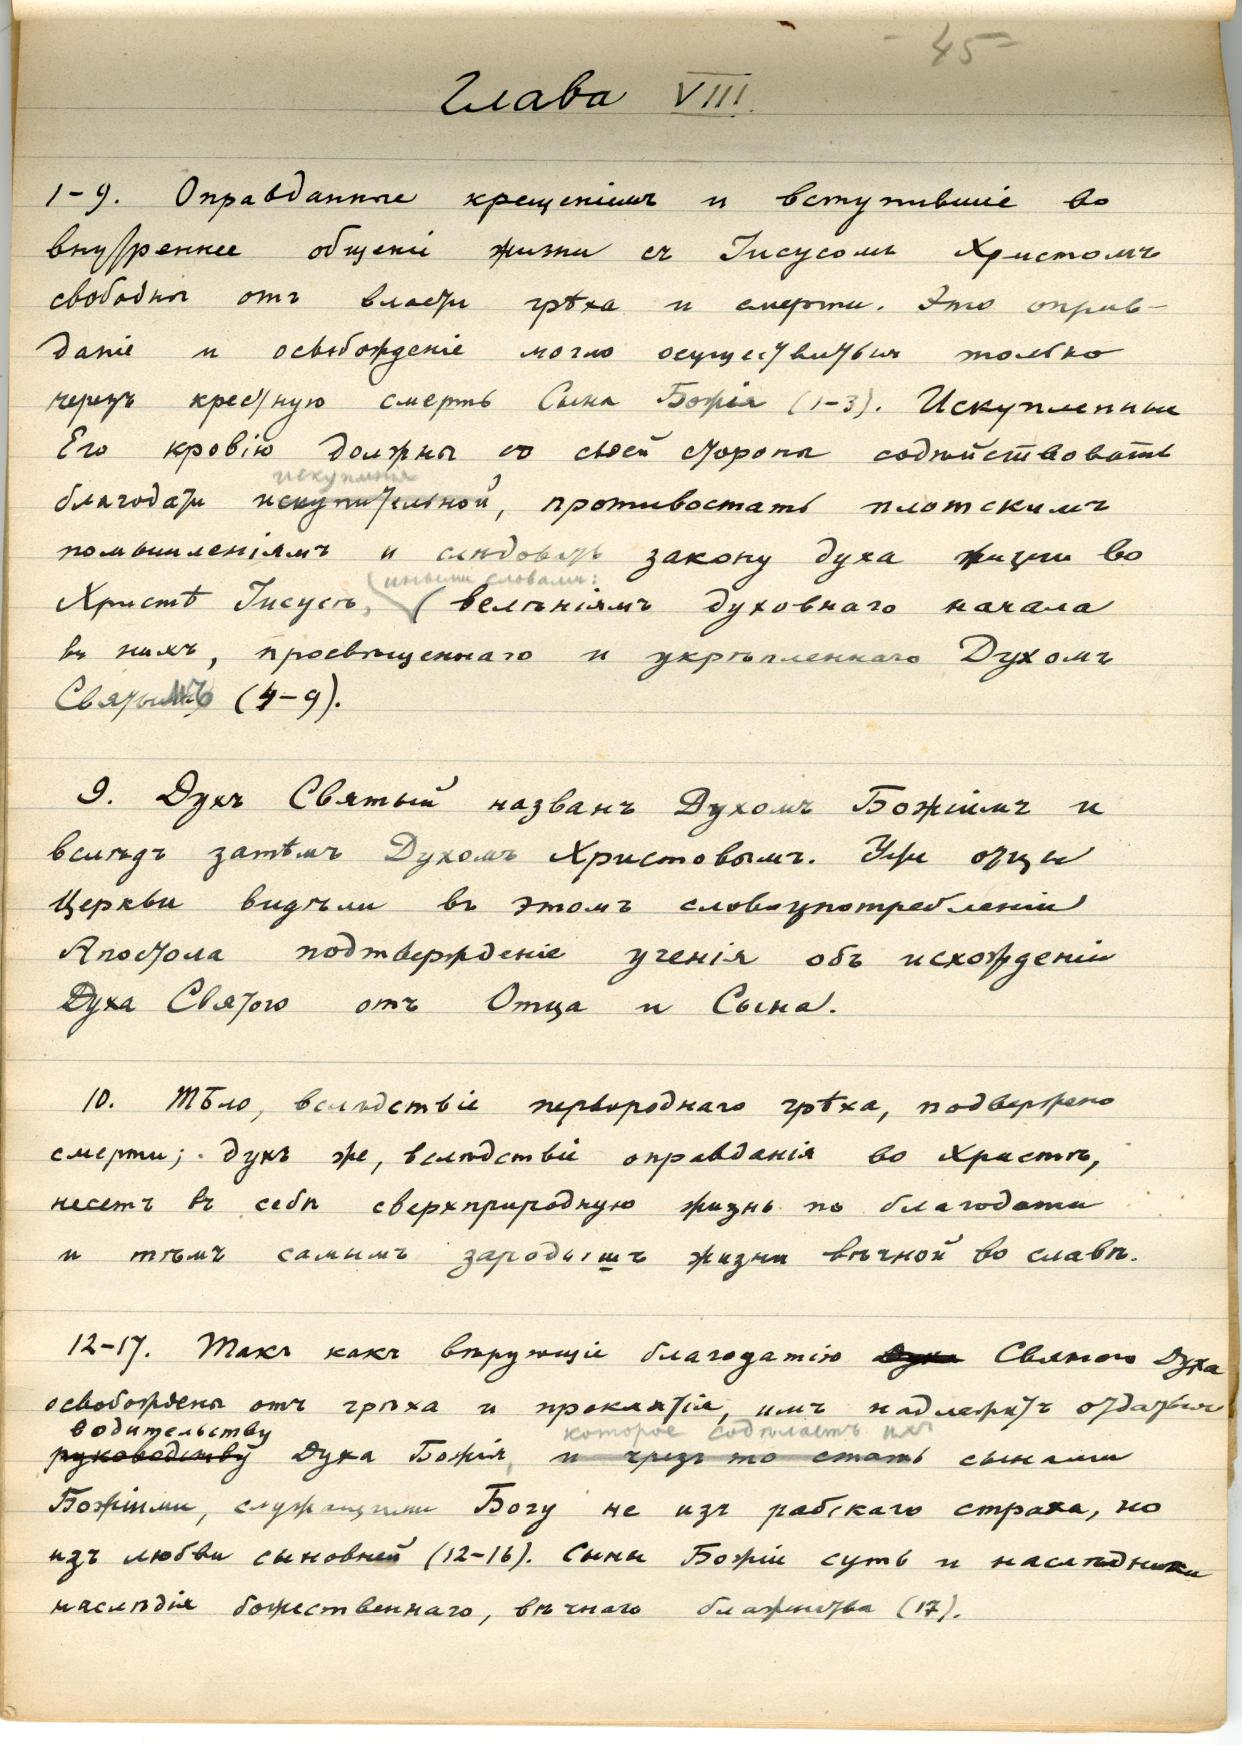 - 45 -
Глава VIII.
1-9. Оправданные крещеніемъ и вступившіе во
внутреннее общеніе жизни съ Іисусомъ Христомъ
свободны отъ власти грѣха и смерти. Это оправ-
даніе и освобожденіе могло осуществиться только
черезъ крестную смерть Сына Божія (1-3). Искупленные
Его кровію должны со своей стороны содѣйствовать
искупленія
благодати искупительной, противостать плотскимъ
помышленіямъ и слѣдовать закону духа жизни во
иными словами:
Христѣ Іисусѣ, (велѣніямъ духовнаго начала
въ нихъ, просвѣщеннаго и укрѣпленнаго Духомъ
Святымъ (4-9).
9. Духъ Святый названъ Духомъ Божіимъ и
вслѣдъ затѣмъ Духомъ Христовымъ. Уже отцы
Церкви видѣли въ этомъ словоупотребленіи
Апостола подтвержденіе ученія объ исхожденіи
Духа Святого отъ Отца и Сына.
10. Тѣло, вслѣдствіе первороднаго грѣха, подвержено
смерти; духъ же, вслѣдствіе оправданія во Христѣ,
несетъ въ себѣ сверхприродную жизнь по благодати
и тѣмъ самымъ зародышъ жизни вѣчной во славѣ.
12-17. Такъ какъ вѣрующіе благодатію Духа Святого Духа
освобождены отъ грѣха и проклятія, имъ надлежитъ отдаться
водительству которое содѣлаетъ ихъ
руководству Духа Божія, и чрезъ то стать сынами
Божіими, служащими Богу не изъ рабскаго страха, но
изъ любви сыновней (12-16). Сыны Божіи суть и наслѣдники
наслѣдія божественнаго, вѣчнаго блаженства (17).